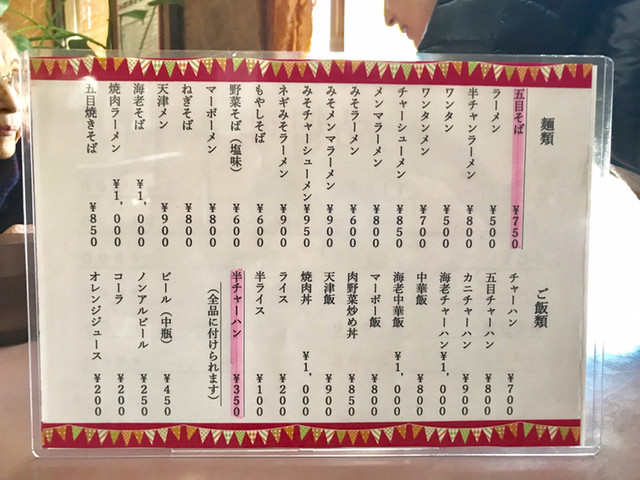 麺類
五目そば ¥750
ラーメン ¥500
半チャンラーメン ¥800
ワンタン ¥500
ワンタンメン ¥700
チャーシューメン ¥850
メンマラーメン ¥800
みそラーメン ¥600
みそメンマラーメン ¥900
みそチャーシューメン ¥950
ネギみそラーメン ¥900
もやしそば ¥600
野菜そば（塩味） ¥600
マーボーメン ¥800
ねぎそば ¥800
天津メン ¥900
海老そば ¥1,000
焼肉ラーメン ¥1,000
五目焼きそば ¥850
ご飯類
チャーハン ¥700
五目チャーハン ¥800
カニチャーハン ¥900
海老チャーハン ¥1,000
中華飯 ¥800
海老中華飯 ¥1,000
マーボー飯 ¥800
肉野菜炒め丼 ¥850
天津飯 ¥900
焼肉丼 ¥1,000
ライス ¥200
半ライス ¥100
半チャーハン ¥350
（全品に付けられます）
ビール（中瓶） ¥450
ノンアルビール ¥250
コーラ ¥200
オレンジジュース ¥200